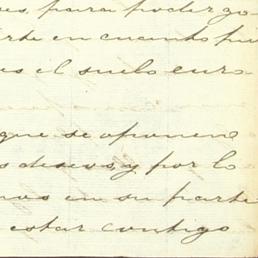 para poder go-
en cuanto pu
el suelo euro-
que se oponen
deseos, y por lo
nos en su parte
estar contigo